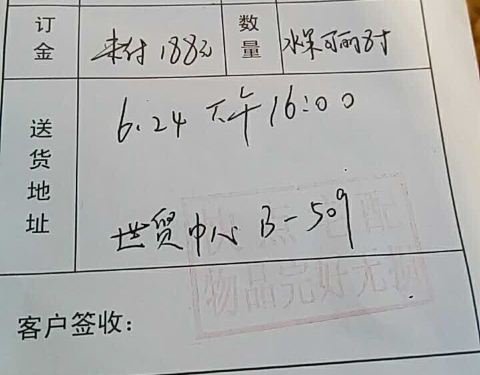 订金 未付188元 数量 水果丽丽8寸
送货地址 6.24 下午16:00
世贸中心 B-509
物品完好无损
客户签收: